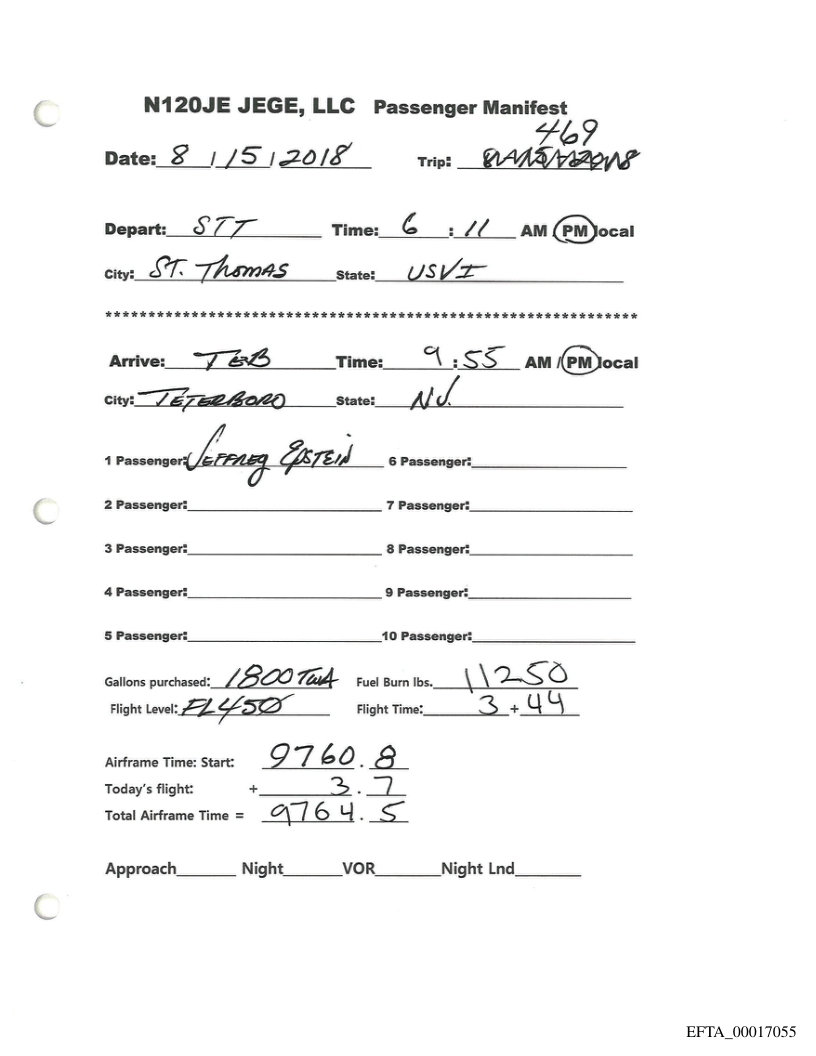 N120JE JEGE, LLC Passenger Manifest
469
Date: 8 / 15 / 2018 Trip:
Depart: STT Time: 6 : 11 AM / PM local
City: ST. THOMAS State: USVI
******************************************************************
Arrive: TEB Time: 9 : 55 AM / PM local
City: TETERBORO State: NJ.
1 Passenger: JEFFREY EPSTEIN 6 Passenger:
2 Passenger: 7 Passenger:
3 Passenger: 8 Passenger:
4 Passenger: 9 Passenger:
5 Passenger: 10 Passenger:
Gallons purchased: 1800 TWA Fuel Burn lbs. 11250
Flight Level: FL450 Flight Time: 3 + 44
Airframe Time: Start: 9760.8
Today's flight: + 3.7
Total Airframe Time = 9764.5
Approach Night VOR Night Lnd
EFTA_00017055